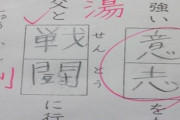 強い意志を
湯
せんとう
父と戦闘に行